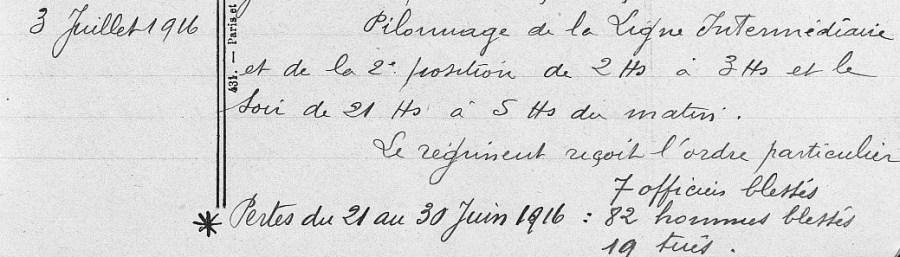 3 Juillet 1916
431. — Paris et
Pilonnage de la Ligne Intermédiaire
et de la 2e position de 2 Hs à 3 Hs et le
soir de 21 Hs à 5 Hs du matin.
Le régiment reçoit l'ordre particulier
7 officiers blessés
* Pertes du 21 au 30 Juin 1916 : 82 hommes blessés
19 tués.